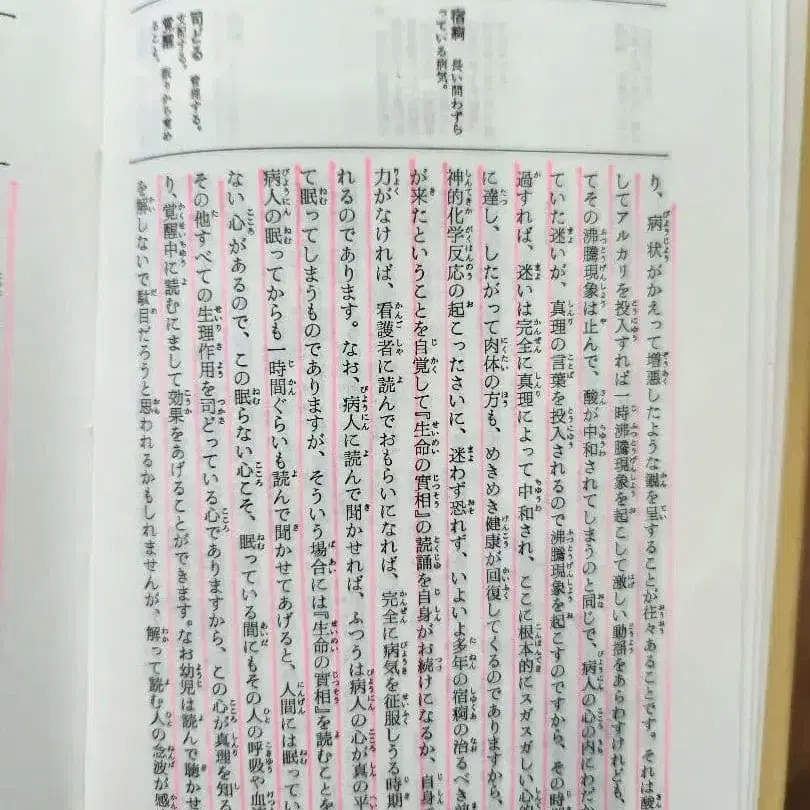 宿痾 長い間わずら
っている病気。
司どる 管理する。
支配する。
覚醒 眠りから覚め
ること。
り、病状がかえって増悪したような観を呈することが往々あることです。それは酸
してアルカリを投入すれば一時沸騰現象を起こして激しい動揺をあらわすけれども、
てその沸騰現象は止んで、酸が中和されてしまうのと同じで、病人の心の内にわだ
ていた迷いが、真理の言葉を投入されるので沸騰現象を起こすのですから、その時
過すれば、迷いは完全に真理によって中和され、ここに根本的にスガスガしい心的
に達し、したがって肉体の方も、めきめき健康が回復してくるのでありますから、
神的化学反応の起こったさいに、迷わず恐れず、いよいよ多年の宿痾の治るべき
が来たということを自覚して『生命の實相』の読誦を自身がお続けになるか、自身
力がなければ、看護者に読んでおもらいになれば、完全に病気を征服しうる時期
れるのであります。なお、病人に読んで聞かせれば、ふつうは病人の心が真の平
て眠ってしまうものでありますが、そういう場合には『生命の實相』を読むことを
病人の眠ってからも一時間ぐらいも読んで聞かせてあげると、人間には眠ってい
ない心があるので、この眠らない心こそ、眠っている間にもその人の呼吸や血
その他すべての生理作用を司どっている心でありますから、この心が真理を知る
り、覚醒中に読むにまして効果をあげることができます。なお幼児は読んで聴かせ
を解しないで駄目だろうと思われるかもしれませんが、解って読む人の念波が感